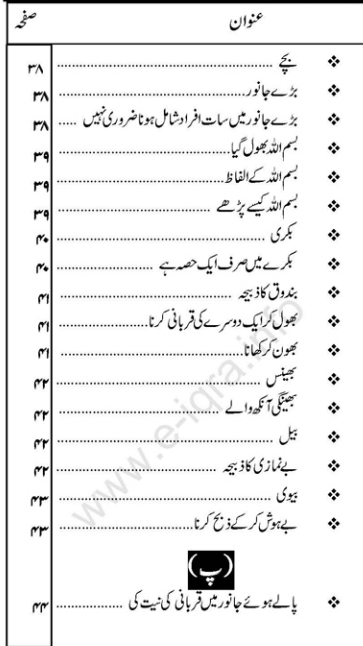 عنوان صفحہ
❖ بچے ........ ۳۸
❖ بڑے جانور ........ ۳۸
❖ بڑے جانور میں سات افراد شامل ہونا ضروری نہیں ..... ۳۸
❖ بسم اللہ بھول گیا ........ ۳۹
❖ بسم اللہ کے الفاظ ........ ۳۹
❖ بسم اللہ کیسے پڑھے ........ ۳۹
❖ بکری ........ ۴۰
❖ بکرے میں صرف ایک حصہ ہے ........ ۴۰
❖ بندوق کا ذبیحہ ........ ۴۱
❖ بھول کر ایک دوسرے کی قربانی کرنا ........ ۴۱
❖ بھون کر کھانا ........ ۴۱
❖ بھینس ........ ۴۲
❖ بھینگی آنکھ والے ........ ۴۲
❖ بیل ........ ۴۲
❖ بے نمازی کا ذبیحہ ........ ۴۲
❖ بیوی ........ ۴۳
❖ بے ہوش کر کے ذبح کرنا ........ ۴۳
(پ)
❖ پالے ہوئے جانور میں قربانی کی نیت کی ........ ۴۴
www.e-iqra.info